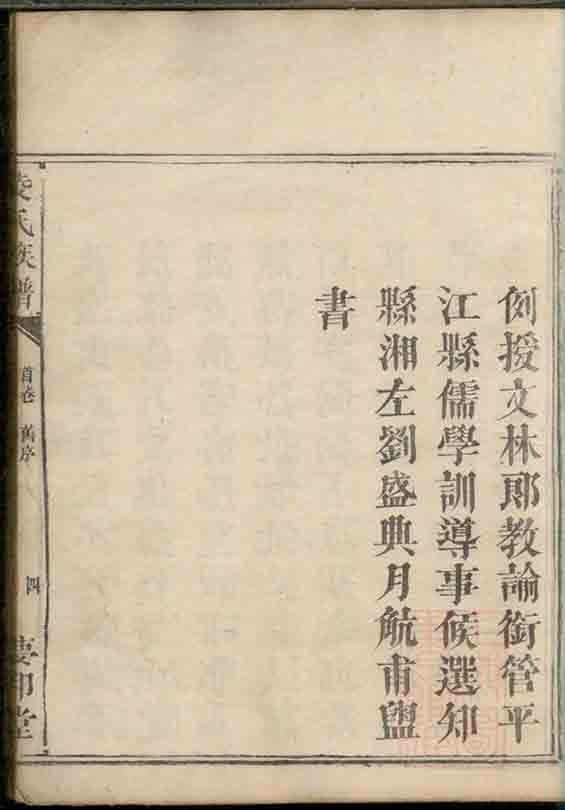 例授文林郎教諭銜管平
江縣儒學訓導事候選知
縣湘左劉盛典月航甫盥
書
凌氏族譜
首卷 舊序
四